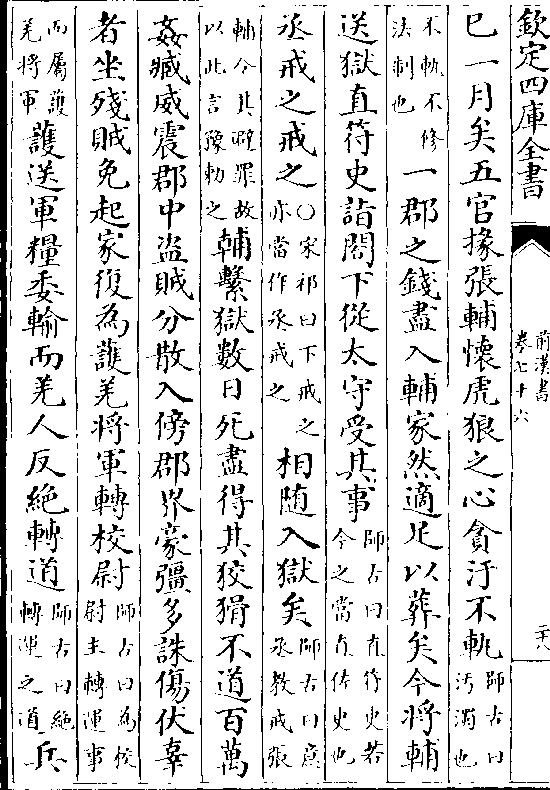 欽定四庫全書
前漢書
卷七十六
已一月矣五官掾張輔懷虎狼之心貪汙不軌師古曰汙濁也
不軌不修法制也一郡之錢盡入輔家然適足以葬矣今將輔
送獄直符史詣閤下從太守受其事師古曰直符史若今之當直佐史也
丞戒之戒之○宋祁曰下戒之亦當作丞戒之相隨入獄矣師古曰為丞教戒張
輔令其避罪故以此言豫勅之輔繫獄數日死盡得其狡猾不道百萬
姦臧威震郡中盜賊分散入傍郡界豪彊多誅傷伏辜
者坐殘賊免起家復為護羌將軍轉校尉師古曰為校尉主轉運事
而屬護羌將軍護送軍糧委輸而羌人反絕轉道師古曰絕轉運之道兵